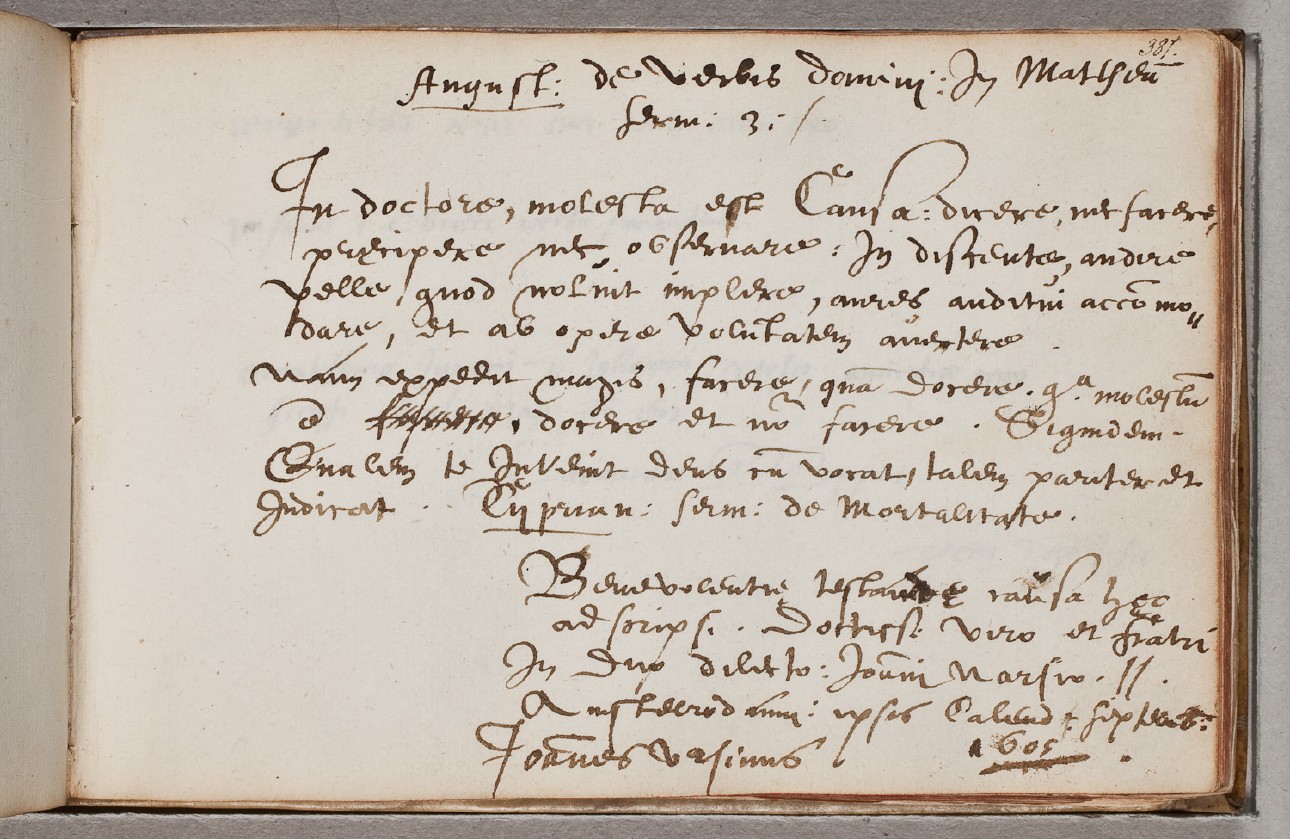 387.
August: de verbis domini: In Mattheū
serm: 3:
In doctore, molesta est Causa: dicere, nec facere,
percipere nec observare: In discente, audire
velle, quod noluit implere, aures auditui accōmo〃
dare, et ab opere volūtatem avertere.
Nam expedit magis, facere, quā docere. qᵃ. molestū
ē docere et nō facere. Siquidem
Qualem te Invenit deus cū vocat, talem pariter et
Iudicat. Cyprian: serm: de Mortalitate.
Benevolentię testandę causa hęc
adscripsi. Doctiss: viro et frātri
In Dño dilecto: Joāni Narsio. //.
Amsterodami: ipsis Calend: Septemb:
1605
Joānes Ursinus